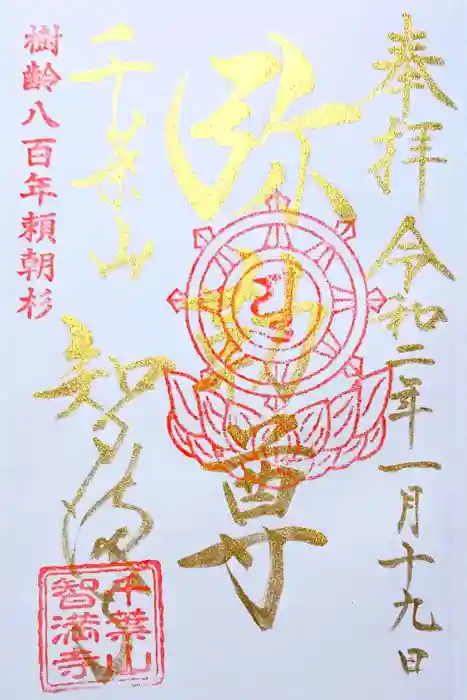 奉拝 令和二年一月十九日
弥勒菩薩
千葉山
智満寺
樹齢八百年頼朝杉
千葉山
智満寺